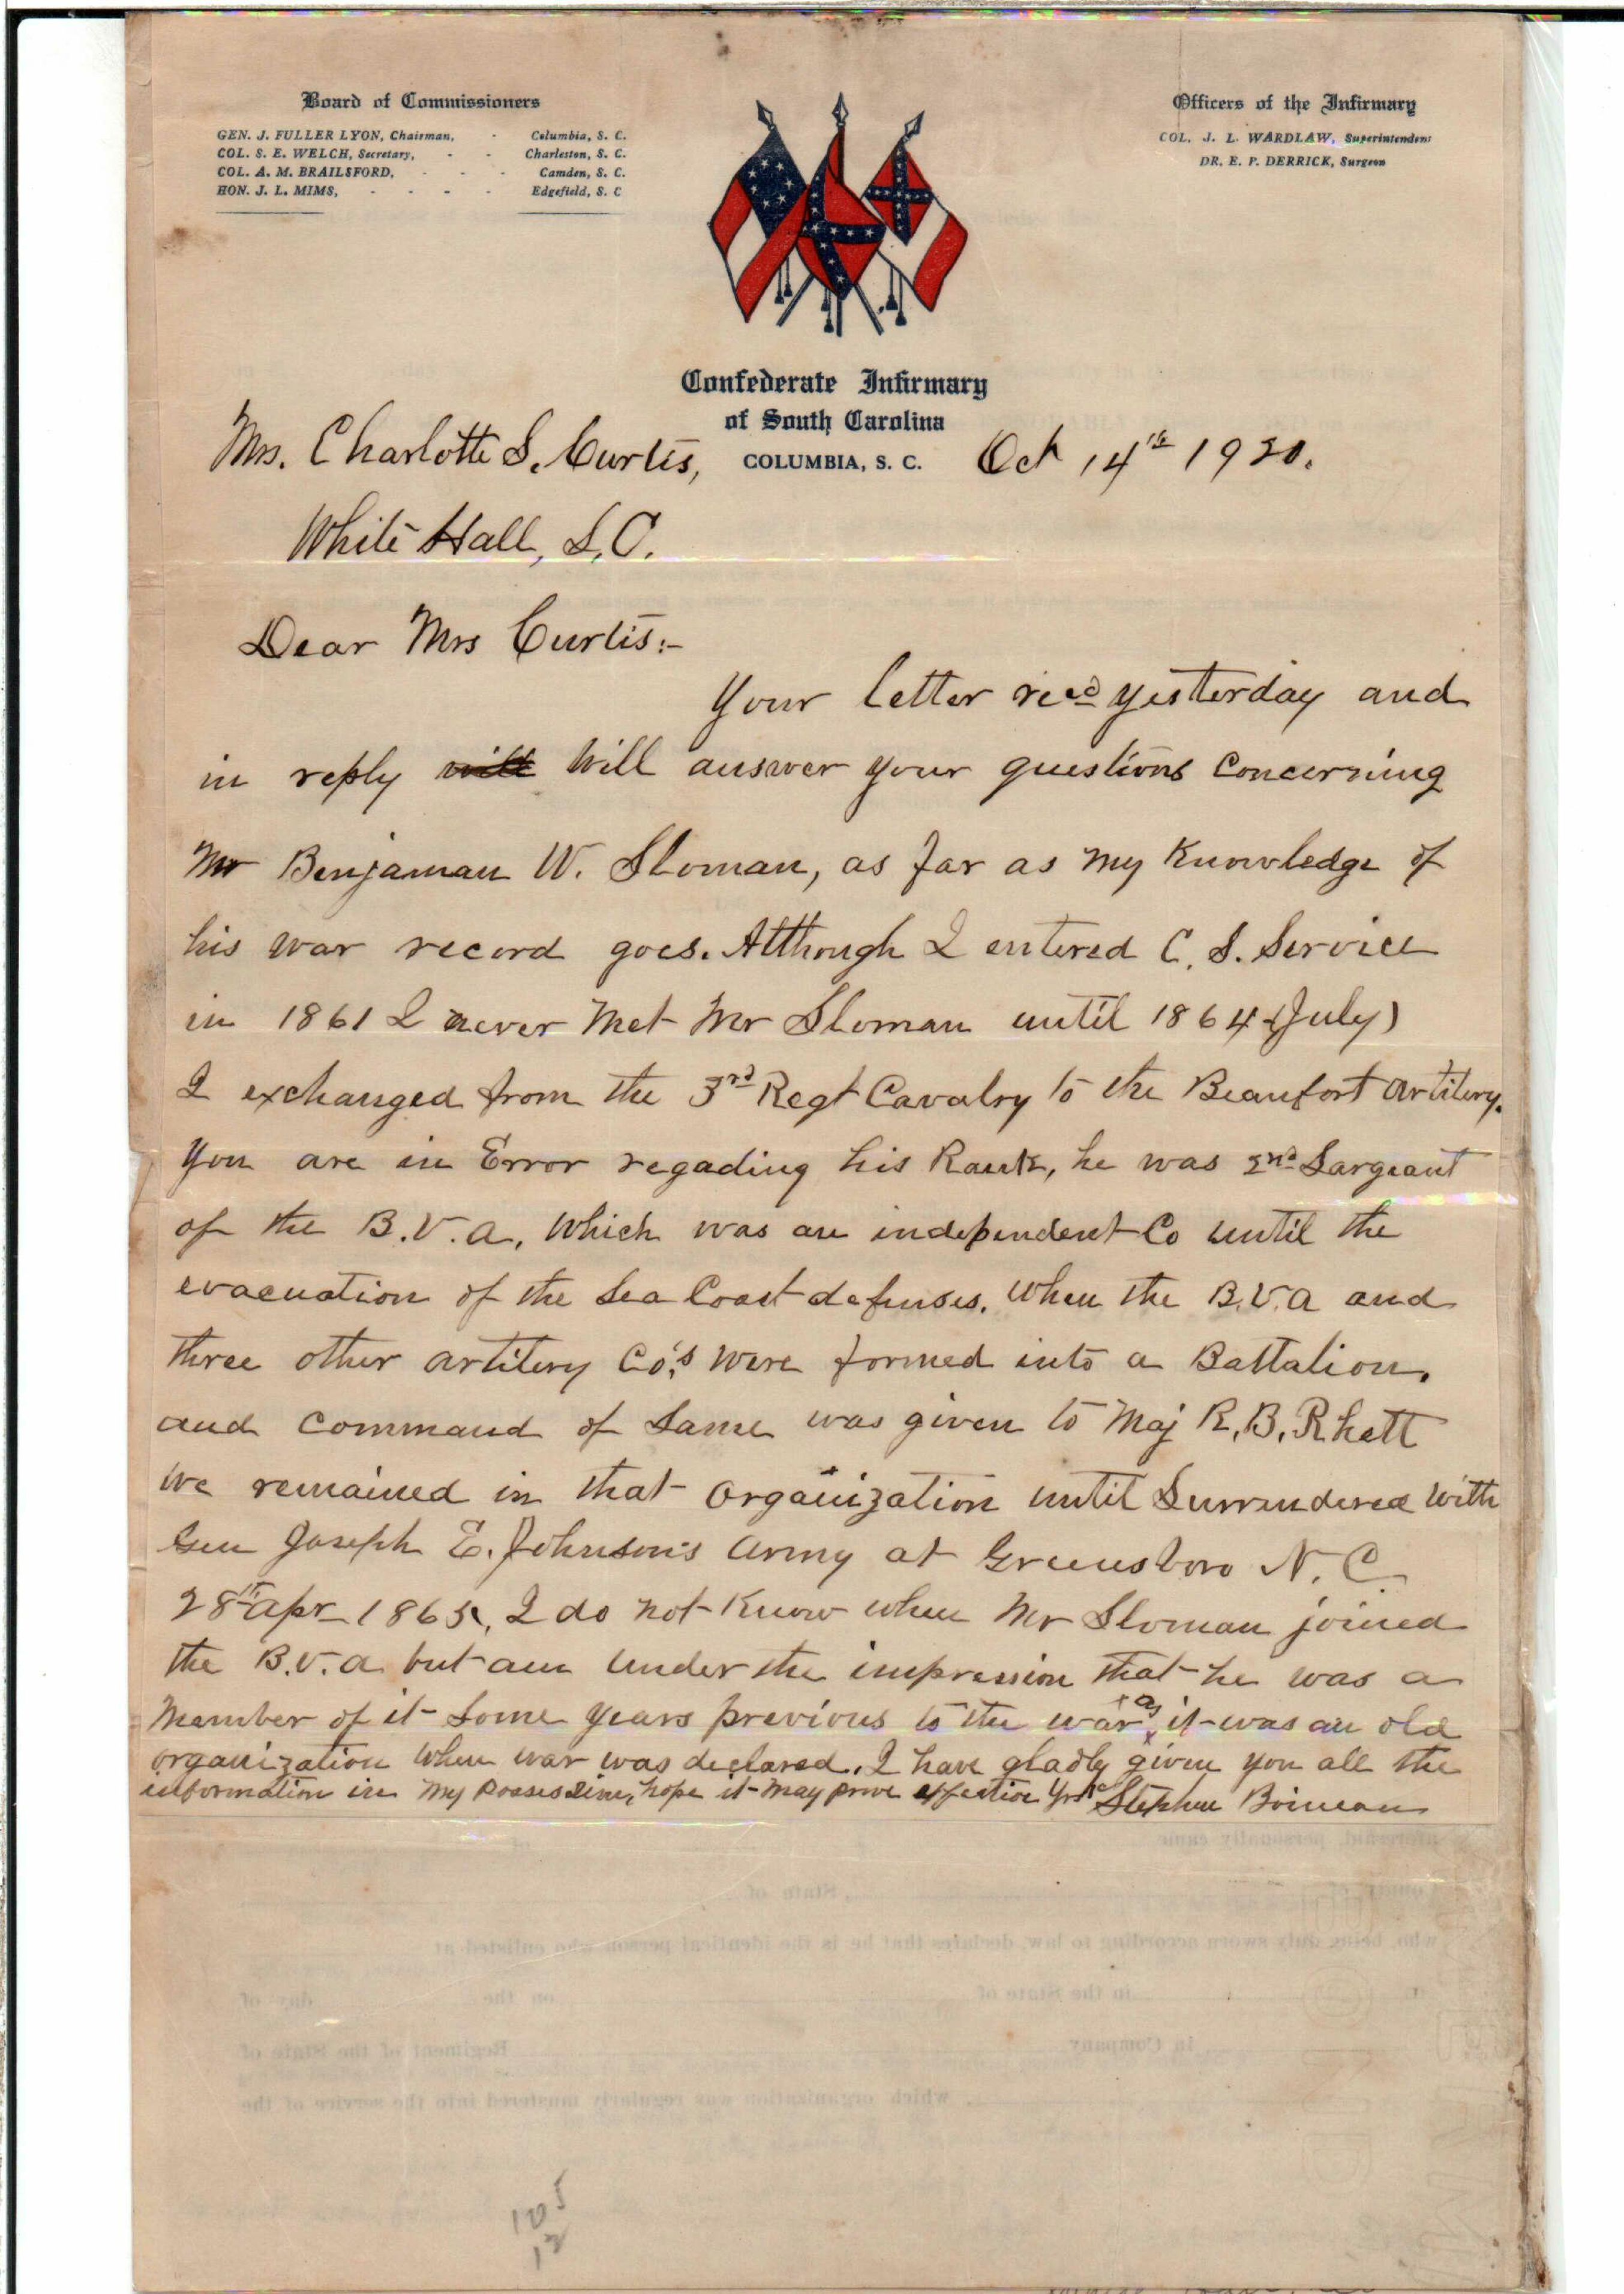 Board of Commissioners
GEN. J. FULLER LYON, Chairman, - Columbia, S. C.
COL. S. E. WELCH, Secretary, - - Charleston, S. C.
COL. A. M. BRAILSFORD, - - - Camden, S. C.
HON. J. L. MIMS, - - - - Edgefield, S. C
Officers of the Infirmary
COL. J. L. WARDLAW, Superintendent
DR. E. P. DERRICK, Surgeon
Confederate Infirmary
of South Carolina
COLUMBIA, S. C.
Mrs. Charlotte S. Curtis, Oct 14th 1920.
White Hall, S.C.
Dear Mrs Curtis:-
Your letter recd yesterday and
in reply will will answer your questions concerning
Mr Benjaman W. Sloman, as far as my Knowledge of
his war record goes. Although I entered C. S. Service
in 1861 I never met Mr Sloman until 1864 (July)
I exchanged from the 3rd Regt Cavalry to the Beaufort Artilery.
You are in Error regading his Rank, he was 2nd Sargeant
of the B.V.A. which was an independent Co until the
evacuation of the Sea Coast defenses. When the B.V.A and
three other artilery Co's were formed into a Battalion.
and command of same was given to Maj R. B. Rhett
we remained in that organization until Surrendered with
Gen Joseph E. Johnson's army at Greensboro N. C.
28th Apr 1865, I do not Know when Mr Sloman joined
the B.V.A but am under the impression that he was a
member of it some years previous to the war, as it was an old
organization when war was declared. I have gladly given you all the
information in my possession, hope it may prove effective Yrs Stephen Boineau
aforesaid, personally came of
County of State of
who, being duly sworn according to law, declares that he is the identical person who enlisted at
in the State of on the day of
in Company Regiment of the State of
which organization was regularly mustered into the service of the
105
12